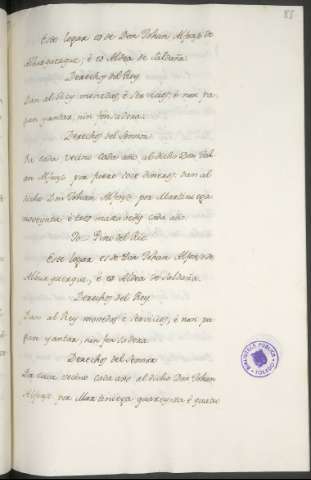 85
Este logar es de Don Johan Alfonso de
Alburquerque, é es Aldea de Saldaña.
Derechos del Rey
Dan al Rey monedas, é servicios, é non pa-
gan yantar, nin fonsadera.
Derechos del Sennor
Da cada vecino cada año al dicho Don Joh-
an Alfonso por
dicho Don Johan Alfonso por Martiniega
é tres maravedis cada año.
Pino del Rio
Este logar es de Don Johan Alfonso de
Alburquerque, é es Aldea de Saldaña.
Derechos del Rey
Dan al Rey monedas é servicios, é non pa-
gan yantar, nin fonsadera
Derechos del Sennor
Da cada vecino cada año al dicho Don Johan
Alfonso por Martiniega quarenta é quatro
BIBLIOTECA PUBLICA
TOLEDO